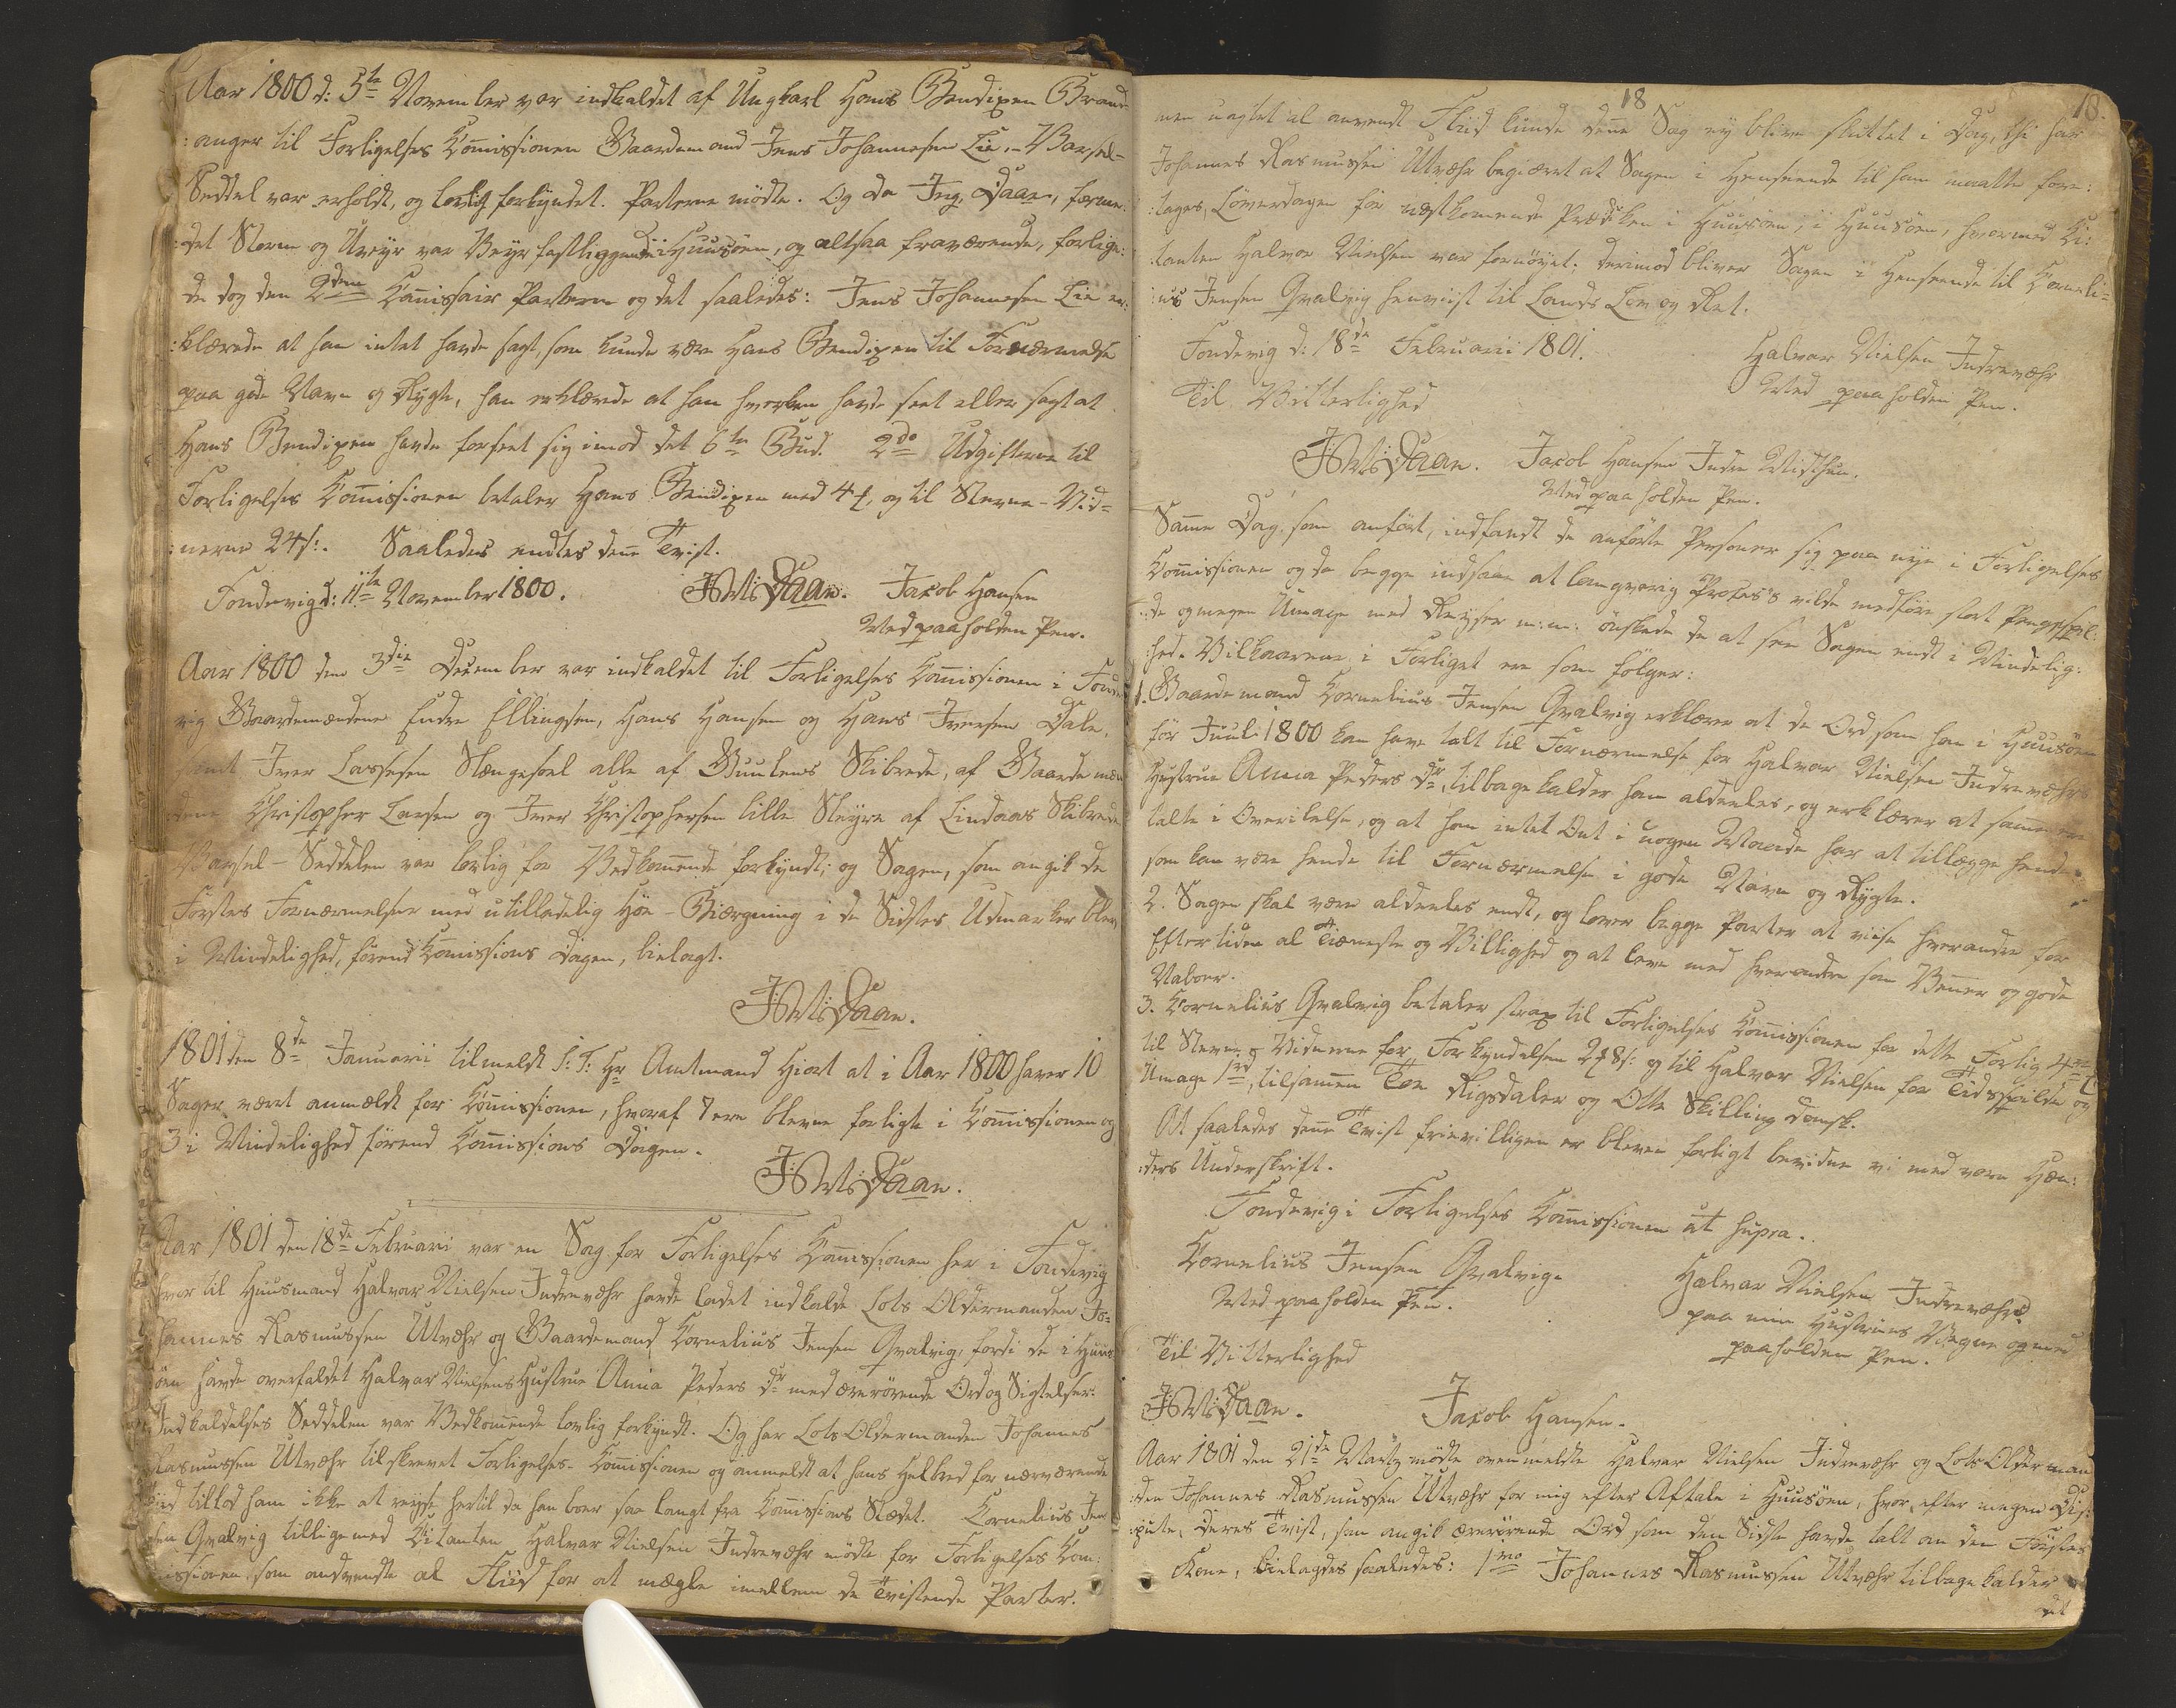 Aar 1800 d: 5te November var indkaldet af Ungkarl Hans Bendixen Brand-
:anger til Forligelses Comissionen Gaardemand Jens Johannesen Lie. - Varsel-
Seddel var erholdt, og lovlig forkyndet. Parterne mödte. Og da Jeg, Daae, forme-
:det Storm og Uveyr var Veyrfastliggende i Huusöen, og altsaa fraværende, forlige-
de dog den 2den Comissair Parterne og det saaledes: Jens Johannesen Lie er-
:klærede at han intet havde sagt, som kunde være Hans Bendixen til Fornærmelse
paa gode Navn og Rygte, han erklærede at han hverken havde seet eller sagt at
Hans Bendixen havde forseet sig imod det 6te Bud. 2do Udgifterne til
Forligelses Comissionen betaler Hans Bendixen med 4 , og til Stevne-Vid-
:nerne 24 s:. Saaledes endtes denne Tvist.
Tondevig d: 11te November 1800. Daae. Jacob Hansen
Med paaholden Pen.
Aar 1800 den 3die December var indkaldet til Forligelses Comissionen i Tonde-
vig Gaardemændene Endre Ellingsen, Hans Hansen og Hans Iversen Dale,
samt Iver Lassesen Slængesoel alle af Guulens Skibrede, af Gaardemæn-
dene Christopher Larsen og Iver Christophersen lille Steyre af Lindaas Skibrede
Varsel-Seddelen var lovlig for Vedkommende forkyndt; og Sagen, som angik de
Förstes Fornærmelser med utilladelig Höe-Biærgning i de Sidstes Udmarker blev
i Mindelighed, förend Comissions Dagen, bielagt.
Daae.
1801 den 8de Januarii tilmeldt S: T: Hr Amtmand Hiort at i Aar 1800 haver 10
Sager været anmældt for Comissionen, hvoraf 7 ere blevne forligte i Comissionen og
3 i Mindelighed förend Comissions Dagen.
Daae.
Aar 1801 den 18de Februari var en Sag for Forligelses Comissionen her i Tondevig
hvor til Huusmand Halvor Nielsen Indrevæhr havde ladet indkalde Lots Oldermanden Jo-
hannes Rasmussen Utvæhr og Gaardemand Cornelius Jensen Qvalvig, fordi de i Huus-
öen havde overfaldet Halvor Nielsens Hustrue Anna Peders dr med ærerörende Ord og Sigtelser.
Indkaldelses Seddelen var Vedkommende lovlig forkyndt. Og har Lots Oldermanden Johannes
Rasmussen Utvæhr tilskrevet Forligelses-Comissionen og anmeldt at hans Helbred for nærværende
Tiid tillod ham ikke at reyse hertil da han boer saa langt fra Comissions Stædet. Cornelius Jen-
sen Qvalvig tilligemed Citanten Halvor Nielsen Indrevæhr mödte for Forligelses Com-
issionen, som anvendte al Fliid for at mægle imellem de Tvistende Parter.
18
18.
men uagtet al anvendt Fliid kunde denne Sag ey blive sluttet i Dag, thi har
Johannes Rasmussen Utvæhr begiæret at Sagen i Henseende til ham maatte fore-
:tages, Löverdagen för næstkomende Prædiken i Huusöen, i Huusöen, hvormed Ci-
:tanten Halvor Nielsen var fornöyet; derimod bliver Sagen i Henseende til Corneli-
:us Jensen Qvalvig henviist til Lands Lov og Ret.
Tondevig d: 18de Februarii 1801. Halvor Nielsen Indrevæhr
Med paaholden Pen.
Til Vitterlighed
Daae. Jacob Hansen Indre Midthun.
Med paaholden Pen.
Samme Dag, som anfört, indfandt de anförte Personer sig paa nye i Forligelses
Comissionen og da begge indsaae at langvarig Process vilde medföre stort Pengespil-
:de og megen Umage med Reyser m: m: önskede de at see Sagen endt i Mindelig-
:hed. Vilkaarene i Forliget ere som fölger:
1. Gaardemand Cornelius Jensen Qvalvig erklærer at de Ord som han i Huusöen
för Juul 1800 kan have talt til Fornærmelse for Halvor Nielsen Indrevæhrs
Hustrue Anna Peders dr, tilbage kalder han aldeeles, og erklærer at samme ere
talte i Overilelse, og at han intet Ont i nogen Maade har at tillægge hende,
som kan være hende til Fornærmelse i gode Navn og Rygte.
2. Sagen skal være aldeeles endt, og lover begge Parter at viise hverandre for
Eftertiden al Tieneste og Villighed og at leve med hverandre som Venner og gode
Naboer.
3. Cornelius Qvalvig betaler strax til Forligelses Comissionen for dette Forlig 4
til Stevne-Vidnerne for Forkyndelsen 2 8 s: og til Halvor Nielsen for Tidsspilde og
Umage 1rd, tilsammen Toe Rigsdaler og Otte Skilling Dansk.
At saaledes denne Tvist frievilligen er bleven forligt bevidne vi med vore Hæn-
:ders Underskrift.
Tondevig i Forligelses Comissionen ut supra.
Cornelius Jensen Qvalvig Halvor Nielsen Indrevæhr
Med paaholden Pen. paa min Hustrues Vegne og med
paaholden Pen.
Til Vitterlighed
Daae. Jacob Hansen.
Aar 1801 den 21de Martz mödte ovenmeldte Halvor Nielsen Indrevæhr og Lots Olderman-
:den Johannes Rasmussen Utvæhr for mig efter Aftale i Huusöen, hvor, efter megen Dis-
:pute, deres Tvist, som angik ærerörende Ord som den Sidste havde talt om den Förstes
Kone, bielagdes saaledes: 1mo Johannes Rasmussen Utvæhr tilbage kalder